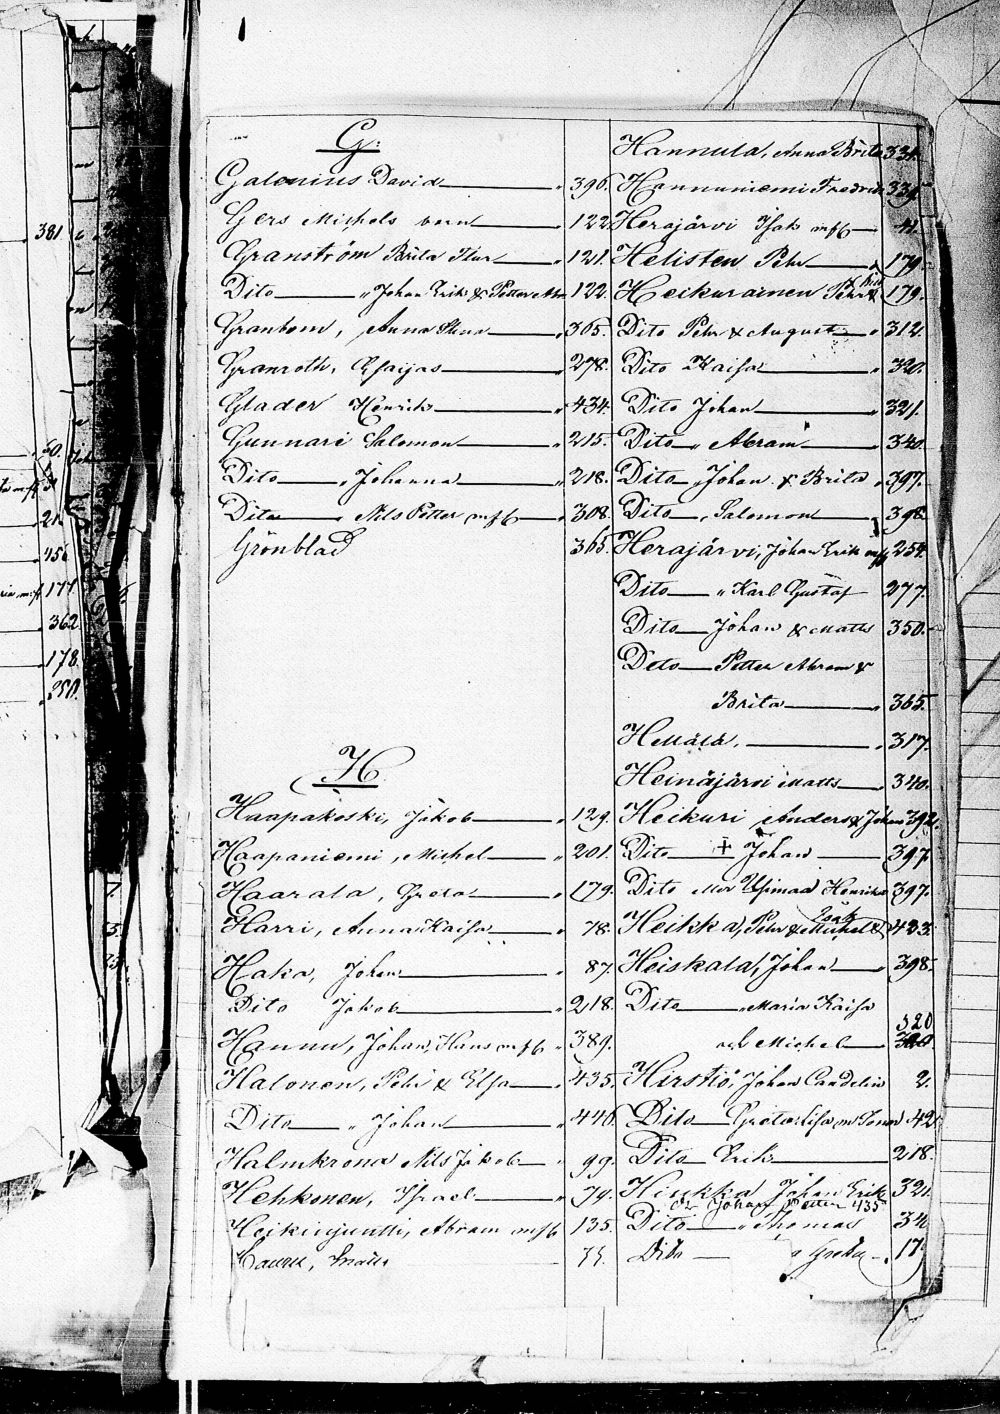 381
50.
21.
456
177
362
178.
250.
7.
G.
Galenius David 396.
Gers Michels barn 122
Granström Brita Stur 121.
Dito Johan Erik & Petter Abr 122.
Granbom, Anna Stina 365.
Granroth, Esaijas 278.
Glader Henrik 434.
Gunnari Salomon 215.
Dito Johanna 218.
Dito Nils Petter mfl 308.
Grönblad 365.
H.
Haapakoski, Jakob 129.
Haapaniemi, Michel 201.
Haarala, Greta 179.
Harri, Anna Kaisa 78.
Haka, Johan 87.
Dito Jakob 218.
Hannu, Johan, Hans mfl 389.
Halonen, Pehr & Elsa 435.
Dito Johan 446.
Halmkrona Nils Jakob 99.
Hehkonen, Israel 79.
Heikinjuntti, Abram mfl 135.
Matts 75.
Hannula, Anna Brita 334.
Hannuniemi Fredrik 339
Herajärvi Isak mfl 41.
Helisten Pehr 179
Heikurainen Pehr & 179.
Dito Pehr & August 312.
Dito Kaisa 320.
Dito Johan 321.
Dito Abram 340
Dito Johan & Brita 397.
Dito Salomon 398.
Herajärvi, Johan Erik mfl 254.
Dito Karl Gustaf 277.
Dito Johan & Matts 350.
Dito Petter Abram &
Brita 365.
Hettälä, 317.
Heinäjärvi Matts 340.
Heikuri Anders & Johan 392.
Dito + Johan 397
Dito Henrika 397.
Heikka, Pehr & Michel & 433.
Heiskala, Johan 398.
Dito Maria Kaisa
320
och Michel
Hirstiö, Johan Candelin 2.
Dito Greta Lisa m Sonen 42.
Dito Erik 218.
Hirkka Johan Erik 321.
Johan Petter 435
Dito Thomas 34
Dito Greta 17.